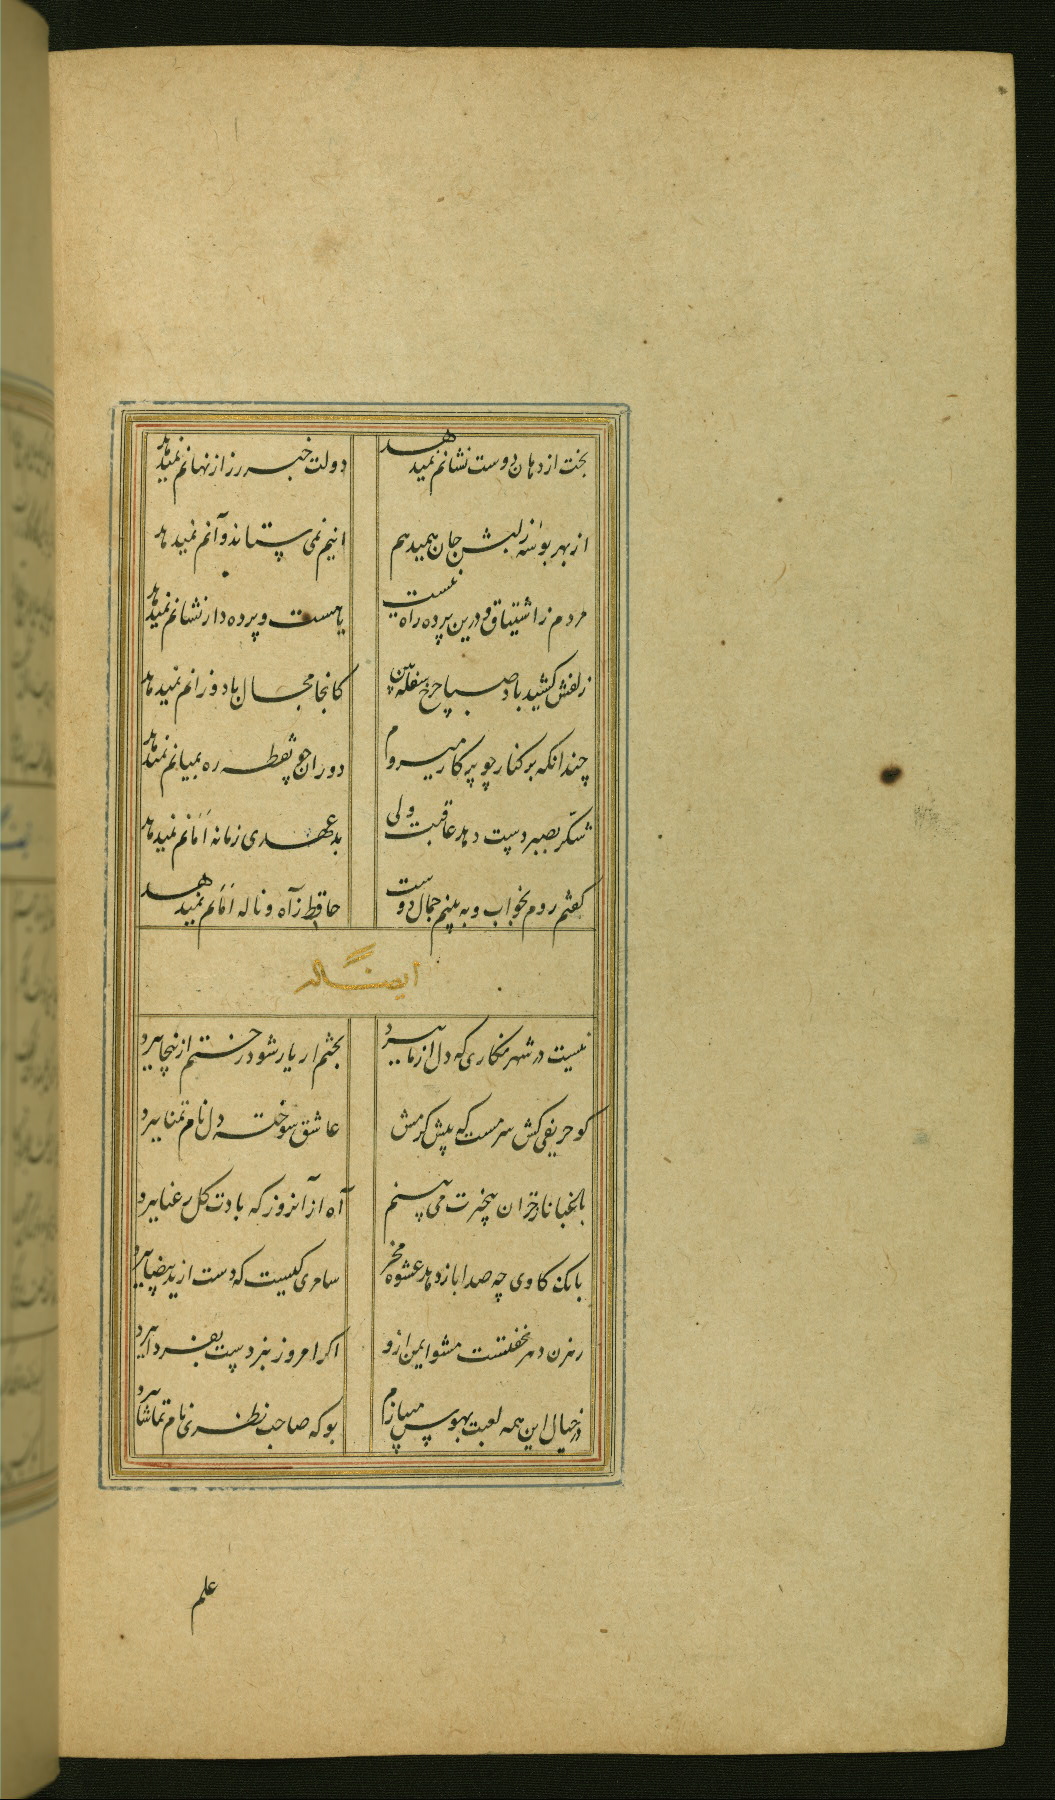 بخت از دهان دوست نشانم نمیدهد دولت خبر ز راز نهانم نمیدهد
از بهر بوسه ز لبش جان همیدهم اینم نمی ستاند و آنم نمیدهد
مردم ز اشتیاق و درین پرده راه نیست یا هست و پرده دار نشانم نمیدهد
زلفش کشید باد صبا چرخ سفله بین کانجا مجال باد وزانم نمیدهد
چندانکه بر کنار چو پرکار میروم دوران چو نقطه ره بمیانم نمیدهد
شکر بصبر دست دهد عاقبت ولی بد عهدی زمانه امانم نمیدهد
گفتم روم بخواب و به بینم جمال دوست حافظ ز آه و ناله امانم نمیدهد
ایضاً له
نیست در شهر نگاری که دل از ما ببرد بختم ار یار شود رختم از نیجا ببرد
کو حریفی کش سرمست که پیش کرمش عاشق سوخته دل نام تمنا ببرد
باغبانا ز خزان بیخبرت می بینم آه از آنروز که بادت گل رعنا ببرد
بانک کاوی چه صدا باز دهد عشوه مخر سامری کیست که دست از ید بیضا ببرد
رهزن دهر نخفتست مشو ایمن ازو اگر امروز نبردست بفردا ببرد
در خیال این همه لعبت بهوس میبازم بو که صاحب نظری نام تماشا ببرد
علم